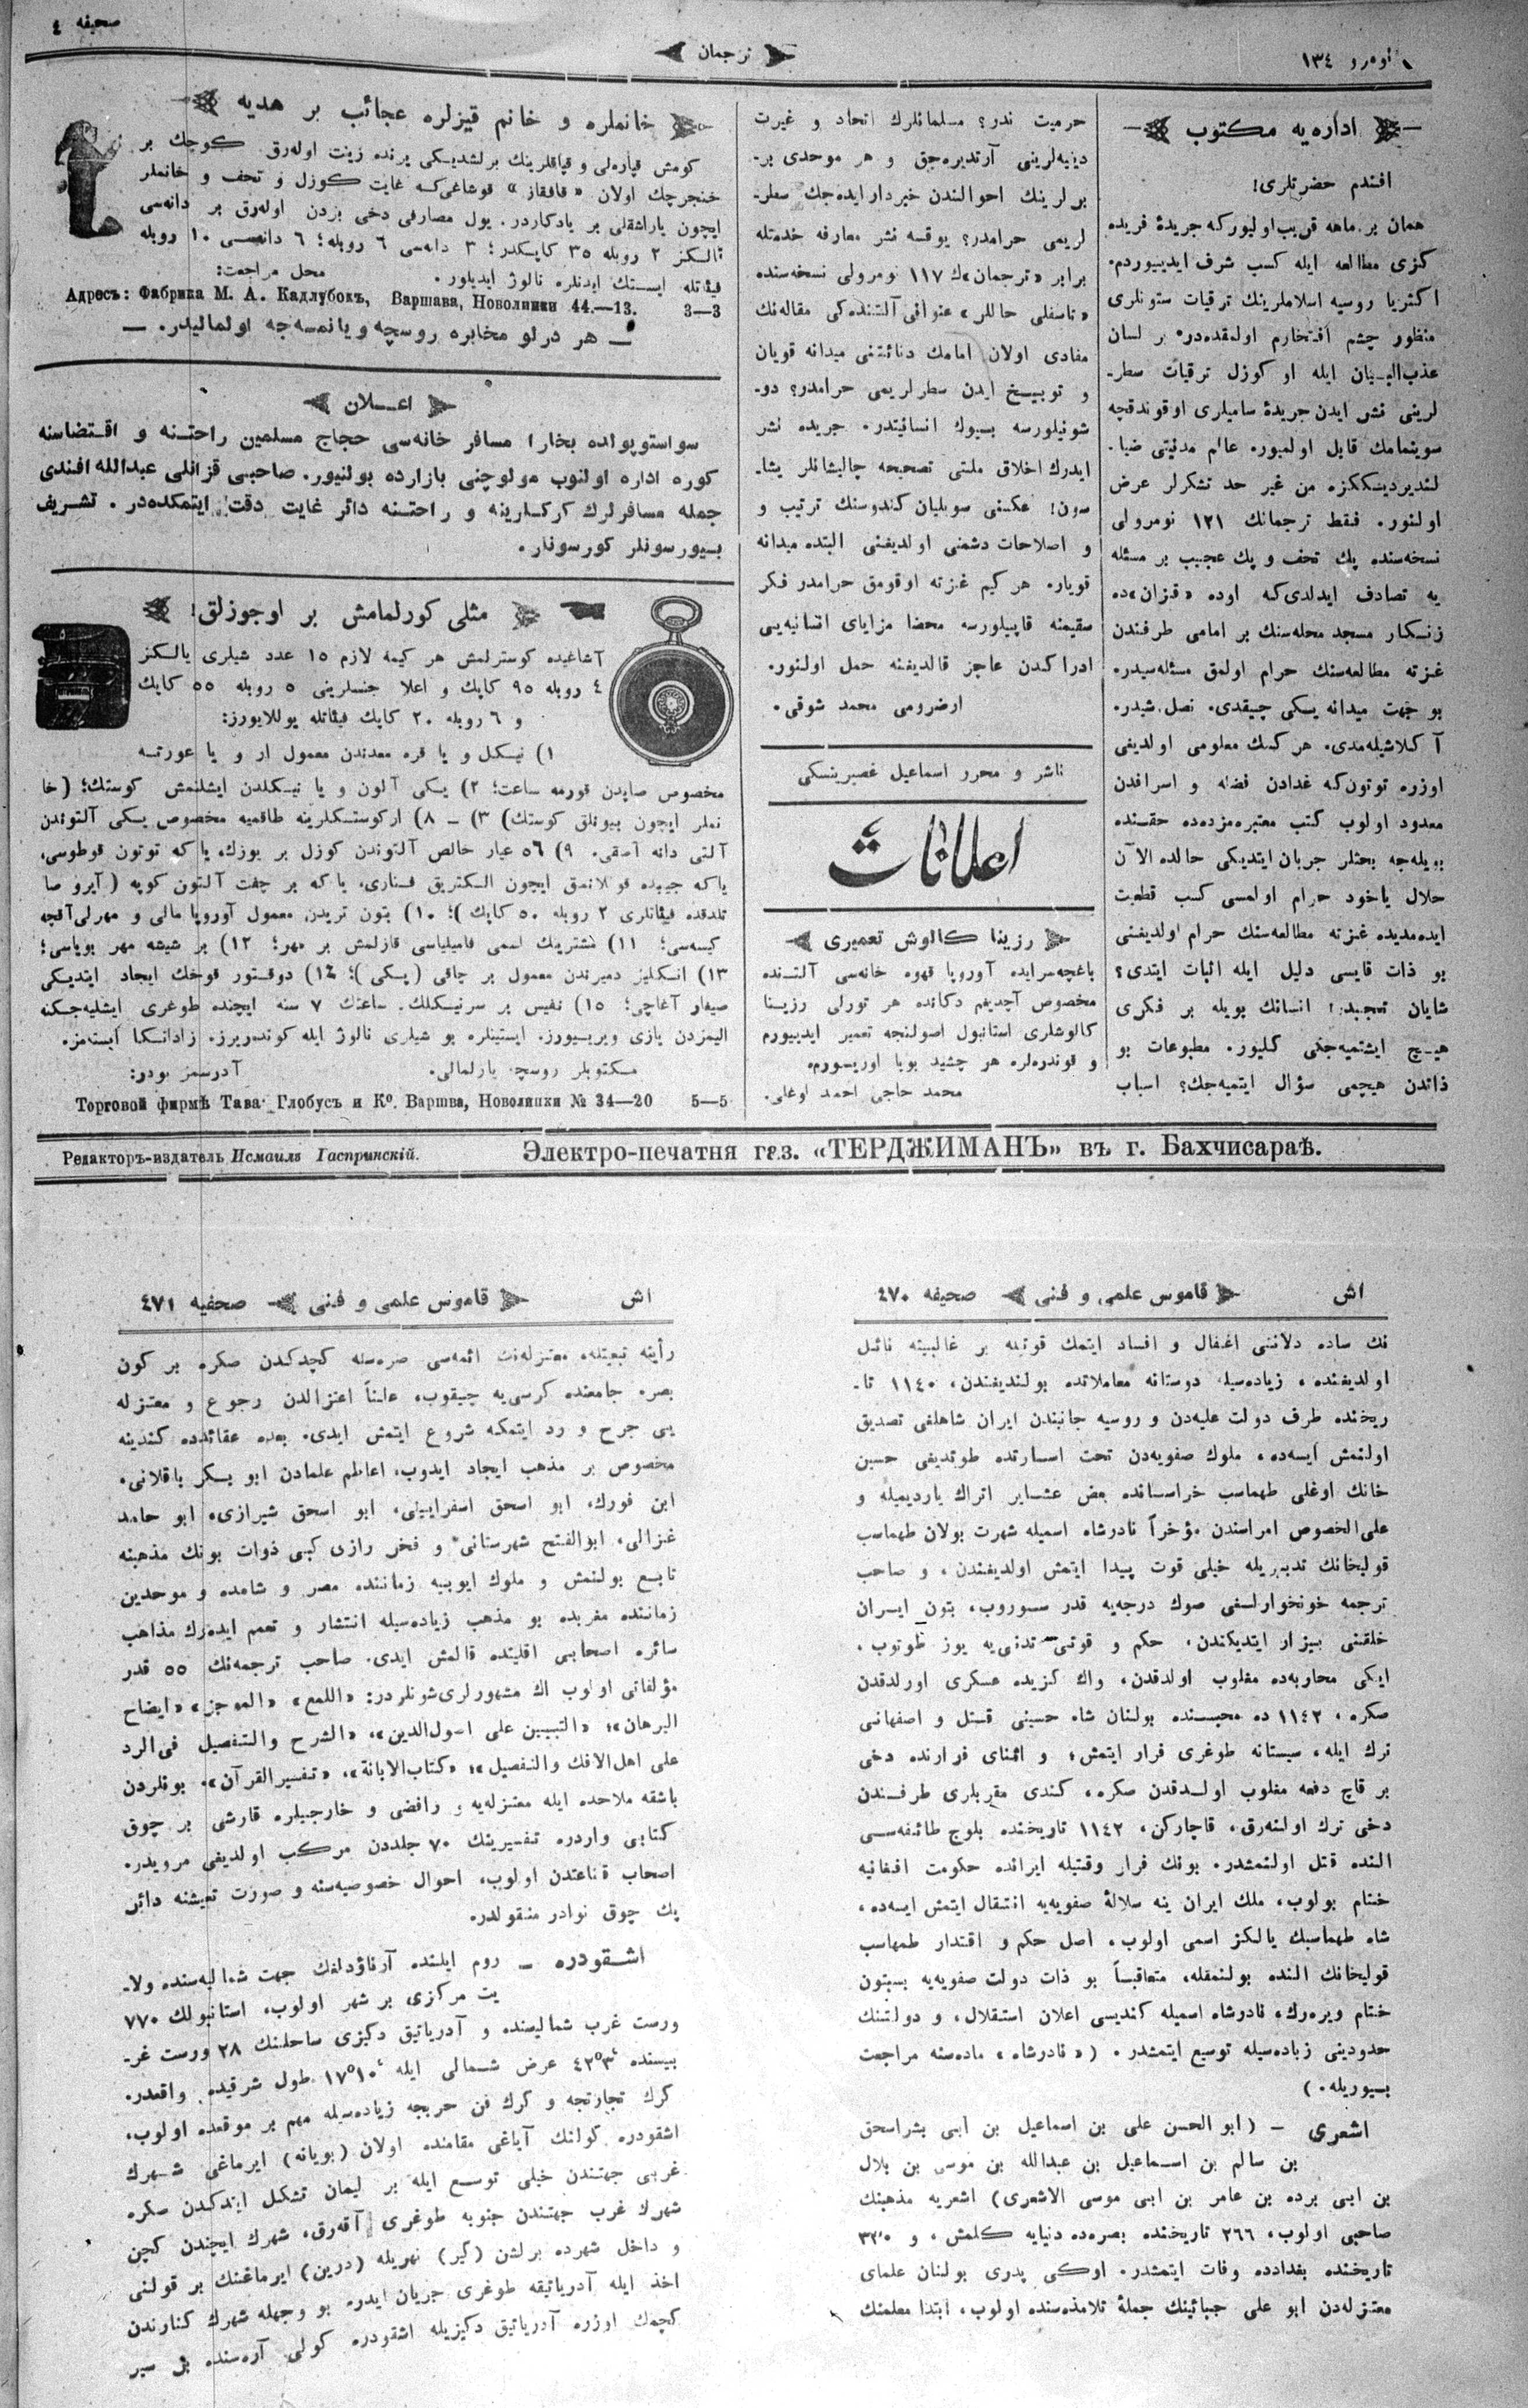 نومرو ١٣٤
ترجمان
صحيفه ٤
اداره‌يه مكتوب
افندم حضرتلری!
همان بر ماهه قريب اوليوركه جريدهٔ فريده
كزی مطالعه ايله كسب شرف ايديبيوردم.
اكثريا روسيه اسلاملرينك ترقيات ستونلری
منظور چشم افتخارم اولمقده‌در. بر لسان
عذب‌البيان ايله او كوزل ترقيات سطر-
لرينی نشر ايدن جريدهٔ ساميلری اوقوندقچه
سوينمامك قابل اولميور. عالم مدنيتی ضيا-
لنديرديسككزه من غير حد تشكرلر عرض
اولنور. فقط ترجمانك ١٢١ نومرولی
نسخه‌سنده پك تحف و پك عجيب بر مسئله
يه تصادف ايدلدی‌كه اوده «قزان»ده
زنسكار مسجد محله‌سنك بر امامی طرفندن
غزته مطالعه‌سنك حرام اولمق مسئله‌سيدر.
بو جهت ميدانه يسكی چيقدی. نصل شيدر.
آكلاشيله‌مدی. هر كسك معلومی اولديغی
اوزره توتون‌كه غدادن فضله و اسرافدن
معدود اولوب كتب معتبره‌مزده‌ده حقنده
بويله‌جه بحثلر جريان ايتديكی حالده الآن
حلال ياخود حرام اولمسی كسب قطعيت
ايده‌مديده غزته مطالعه‌سنك حرام اولديغنی
بو ذات قايسی دليل ايله اثبات ايتدی؟
شايان تعجبدر! انسانك بويله بر فكری
هيچ ايشتميه‌جكی كليور. مطبوعات بو
ذاتدن هيچمی سؤال ايتميه‌جك؟ اسباب
حرميت ندر؟ مسلمانلرك اتحاد و غيرت
دينيه‌لرينی آرتديره‌جق و هر موحدی بر-
برلرينك احوالندن خبردار ايده‌جك سطر-
لريمی حرامدر؟ يوقسه نشر معارفه خدمتله
برابر «ترجمان»ك ١١٧ نومرولی نسخه‌سنده
«تاسفلی حاللر» عنوانی آلتنده‌كی مقاله‌نك
مفادی اولان امامك دنائتنی ميدانه قويان
و توبيخ ايدن سطرلريمی حرامدر؟ دو-
شونيلورسه بيوك انسانيتدر. جريده نشر
ايدرك اخلاق ملتی تصحيحه چاليشانلر يشا-
سون! عكسنی سويليان كندوسنك ترتيب و
و اصلاحات دشمنی اولديغنی البته ميدانه
قويار. هر كيم غزته اوقومق حرامدر فكر
سقيمنه قاپيلورسه محضا مزايای انسانيه‌يی
ادراكدن عاجز قالديغنه حمل اولنور.
ارضرومی محمد شوقی.
ناشر و محرر اسماعيل غصپرينسكی
اعلانات
رزينا كالوش تعميری
باغچه‌سرايده آوروپا قهوه خانه‌سی آلتنده
مخصوص آچديغم دكانده هر تورلی رزينا
كالوشلری استانبول اصولنجه تعمير ايدييورم
و قوندره‌لره هر چشيد بويا اوريسورم.
محمد حاجی احمد اوغلی.
خانملره و خانم قيزلره عجائب بر هديه
كومش قپاره‌لی و قپاقلرينك برلشديكی يرنده زينت اوله‌رق كوچك بر
خنجرچك اولان «قافقاز» قوشاغی‌كه غايت كوزل و تحف و خانملر
ايچون ياراشقلی بر يادكاردر. يول مصارفی دخی بزدن اوله‌رق بر دانه‌سی
يالكز ٢ روبله ٣٥ كاپيكدر؛ ٣ دانه‌سی ٦ روبله؛ ٦ دانه‌سی ١٠ روبله
فيئاتله ايستك ايدنلره نالوژ ايديلور. محل مراجعت:
Адресъ: Фабрика М. А. Кадлубокъ, Варшава, Новолипки 44.—13. 3—3
— هر درلو مخابره روسچه و يا نمسه‌جه اولماليدر. —
اعـــلان
سواستوپولده بخارا مسافر خانه‌سی حجاج مسلمين راحتنه و اقتضاسنه
كوره اداره اولنوب مولوچنی بازارده بولنيور. صاحبی قزانلی عبدالله افندی
جمله مسافرلرك كركارينه و راحتنه دائر غايت دقت ايتمكده‌در. تشريف
بيورسونلر كورسونلر.
مثلی كورلمامش بر اوجوزلق!
آشاغيده كوسترلمش هر كيمه لازم ١٥ عدد شيلری يالكز
٤ روبله ٩٥ كاپك و اعلا جنسلرينی ٥ روبله ٥٥ كاپك
و ٦ روبله ٢٠ كاپك فيئاتله يوللايورز:
١) نيكل و يا قره معدندن معمول ار و يا عورته
مخصوص صايدن قورمه ساعت؛ ٢) يكی آلتون و يا نيكلدن ايشلنمش كوستك؛ (خا
نملر ايچون بيونلق كوستك) ٣) — ٨) اركوستكلرينه طاقميه مخصوص يكی آلتوندن
آلتی دانه آصقی. ٩) ٥٦ عيار خالص آلتوندن كوزل بر يوزك، ياكه توتون قوطوسی،
ياكه جيبده قوللانمق ايچون الكتريق فناری، ياكه بر چفت آلتون كوپه (آيرو صا
تلدقده فيئاتلری ٢ روبله ٥٠ كاپك)؛ ١٠) بتون تريدن معمول آوروپا مالی و مهرلی آقچه
كيسه‌سی؛ ١١) مشترينك اسمی فاميلياسی قازلمش بر مهر؛ ١٢) بر شيشه مهر بوياسی؛
١٣) انسكليز دميرندن معمول بر چاقی (يسكی)؛ ١٤) دوقتور قوخك ايجاد ايتديكی
صيغار آغاچی؛ ١٥) نفيس بر سرنيكلك. ساعتك ٧ سنه ايچنده طوغری ايشليه‌جكنه
اليمزدن يازی ويريیورز. ايستينلره بو شيلری نالوژ ايله كوندريرز. زاداتكا ايسته‌مز.
مكتوبلر روسچه يازلمالی. آدرسمز بودر:
Торговой фирмѣ Тава. Глобусъ и Кº. Варшва, Новолипки № 34—20 5—5
Редакторъ-издатель Исмаилъ Гаспринскій.
Электро-печатня газ. «ТЕРДЖИМАНЪ» въ г. Бахчисараѣ.
اش قاموس علمی و فنی صحيفه ٤٧٠
نك ساده دلاننی اغفال و افساد ايتمك قوتيله بر غالبيته نائل
اولديغنده، زياده‌سيله دوستانه معاملاتده بولنديغندن، ١١٤٠ تا-
ريخنده طرف دولت عليه‌دن و روسيه جانبندن ايران شاهلغی تصديق
اولنمش ايسه‌ده، ملوك صفويه‌دن تحت اسارتده طوتديغی حسين
خانك اوغلی طهماسب خراسانده بعض عشاير اتراك ياردیميله و
علی‌الخصوص امراسندن مؤخراً نادرشاه اسميله شهرت بولان طهماسب
قوليخانك تدبيريله خيلی قوت پيدا ايتمش اولديغندن، و صاحب
ترجمه خونخوارلغی صوك درجه‌يه قدر سوروب، بتون ايران
خلقنی بيزار ايتديكندن، حكم و قوتی تدنی‌يه يوز طوتوب،
ايكی محاربه‌ده مغلوب اولدقدن، واك كزيده عسكری اورلدقدن
صكره، ١١٤٢ ده محبسنده بولنان شاه حسينی قتل و اصفهانی
ترك ايله، سيستانه طوغری فرار ايتمش؛ و اثنای فرارنده دخی
بر قاچ دفعه مغلوب اولدقدن صكره، كندی مقربلری طرفندن
دخی ترك اولنه‌رق، قاچاركن، ١١٤٢ تاريخنده بلوچ طائفه‌سی
النده قتل اولنمشدر. بونك فرار وقتيله ايرانده حكومت افغانيه
ختام بولوب، ملك ايران ينه سلالهٔ صفويه‌يه انتقال ايتمش ايسه‌ده،
شاه طهماسبك يالكز اسمی اولوب، اصل حكم و اقتدار طهماسب
قوليخانك النده بولنمقله، متعاقباً بو ذات دولت صفويه‌يه بسبتون
ختام ويره‌رك، نادرشاه اسميله كنديسی اعلان استقلال، و دولتنك
حدودينی زياده‌سيله توسيع ايتمشدر. («نادرشاه» ماده‌سنه مراجعت
بيوريله.)
اشعری — (ابو الحسن علی بن اسماعيل بن ابی بشراسحق
بن سالم بن اسماعيل بن عبدالله بن موسی بن بلال
بن ابی برده بن عامر بن ابی موسی الاشعری) اشعريه مذهبنك
صاحبی اولوب، ٢٦٦ تاريخنده بصره‌ده دنيايه كلمش، و ٣٣٠
تاريخنده بغدادده وفات ايتمشدر. اوكی پدری بولنان علمای
معتزله‌دن ابو علی جبائينك جملهٔ تلامذه‌سنده اولوب، ابتدا معلمنك
اش قاموس علمی و فنی صحفيه ٤٧١
رأينه تبعيتله، معتزله‌نك ائمه‌سی صره‌سنه كچدكدن صكره بر كون
بصره جامعنده كرسی‌يه چيقوب، علناً اعتزالدن رجوع و معتزله
يی جرح و رد ايتمكه شروع ايتمش ايدی. بعده عقائدده كندينه
مخصوص بر مذهب ايجاد ايدوب، اعاظم علمادن ابو بكر باقلانی.
ابن فورك، ابو اسحق اسفراينی، ابو اسحق شيرازی، ابو حامد
غزالی، ابوالفتح شهرستانی و فخر رازی كبی ذوات بونك مذهبنه
تابع بولنمش و ملوك ايوبيه زماننده مصر و شامده و موحدين
زماننده مغربده بو مذهب زياده‌سيله انتشار و تعمم ايده‌رك مذاهب
سائره اصحابی اقليتده قالمش ايدی. صاحب ترجمه‌نك ٥٥ قدر
مؤلفاتی اولوب اك مشهورلری‌شونلردر: «اللمع» «الموجز» «ايضاح
البرهان»؛ «التبيين علی اصول‌الدين»، «الشرح والتفصيل فی‌الرد
علی اهل‌الافك والتفصيل»؛ «كتاب‌الابانة»، «تفسيرالقرآن». بونلردن
باشقه ملاحده ايله معتزله‌يه و رافضی و خارجيلره قارشی بر چوق
كتابی واردر. تفسيرينك ٧٠ جلددن مركب اولديغی مرويدر.
اصحاب قناعتدن اولوب، احوال خصوصيه‌سنه و صورت تعيشنه دائر
پك چوق نوادر منقولدر.
اشقودره — روم ايلنده آرناؤدلغك جهت شماليه‌سنده ولا-
يت مركزی بر شهر اولوب، استانبولك ٧٧٠
ورست غرب شماليسنده و آدرياتيق دكيزی ساحلنك ٢٨ ورست غر-
بيسنده ٤٢°٣´ عرض شمالی ايله ١٧°١٠´ طول شرقيده واقعدر.
كرك تجارتجه و كرك فن حربجه زياده‌سيله مهم بر موقعده اولوب،
اشقودره كولنك آياغی مقامنده اولان (بويانه) ايرماغی شهرك
غربی جهتندن خيلی توسع ايله بر ليمان تشكل ايتدكدن صكره
شهرك غرب جهتندن جنوبه طوغری آقه‌رق، شهرك ايچندن كچن
و داخل شهرده برلشن (كير) نهريله (درين) ايرماغنك بر قولنی
اخذ ايله آدرياتيقه طوغری جريان ايدر. بو وجهله شهرك كنارندن
كچمك اوزره آدرياتيق دكيزيله اشقودره كولی آره‌سنده سير